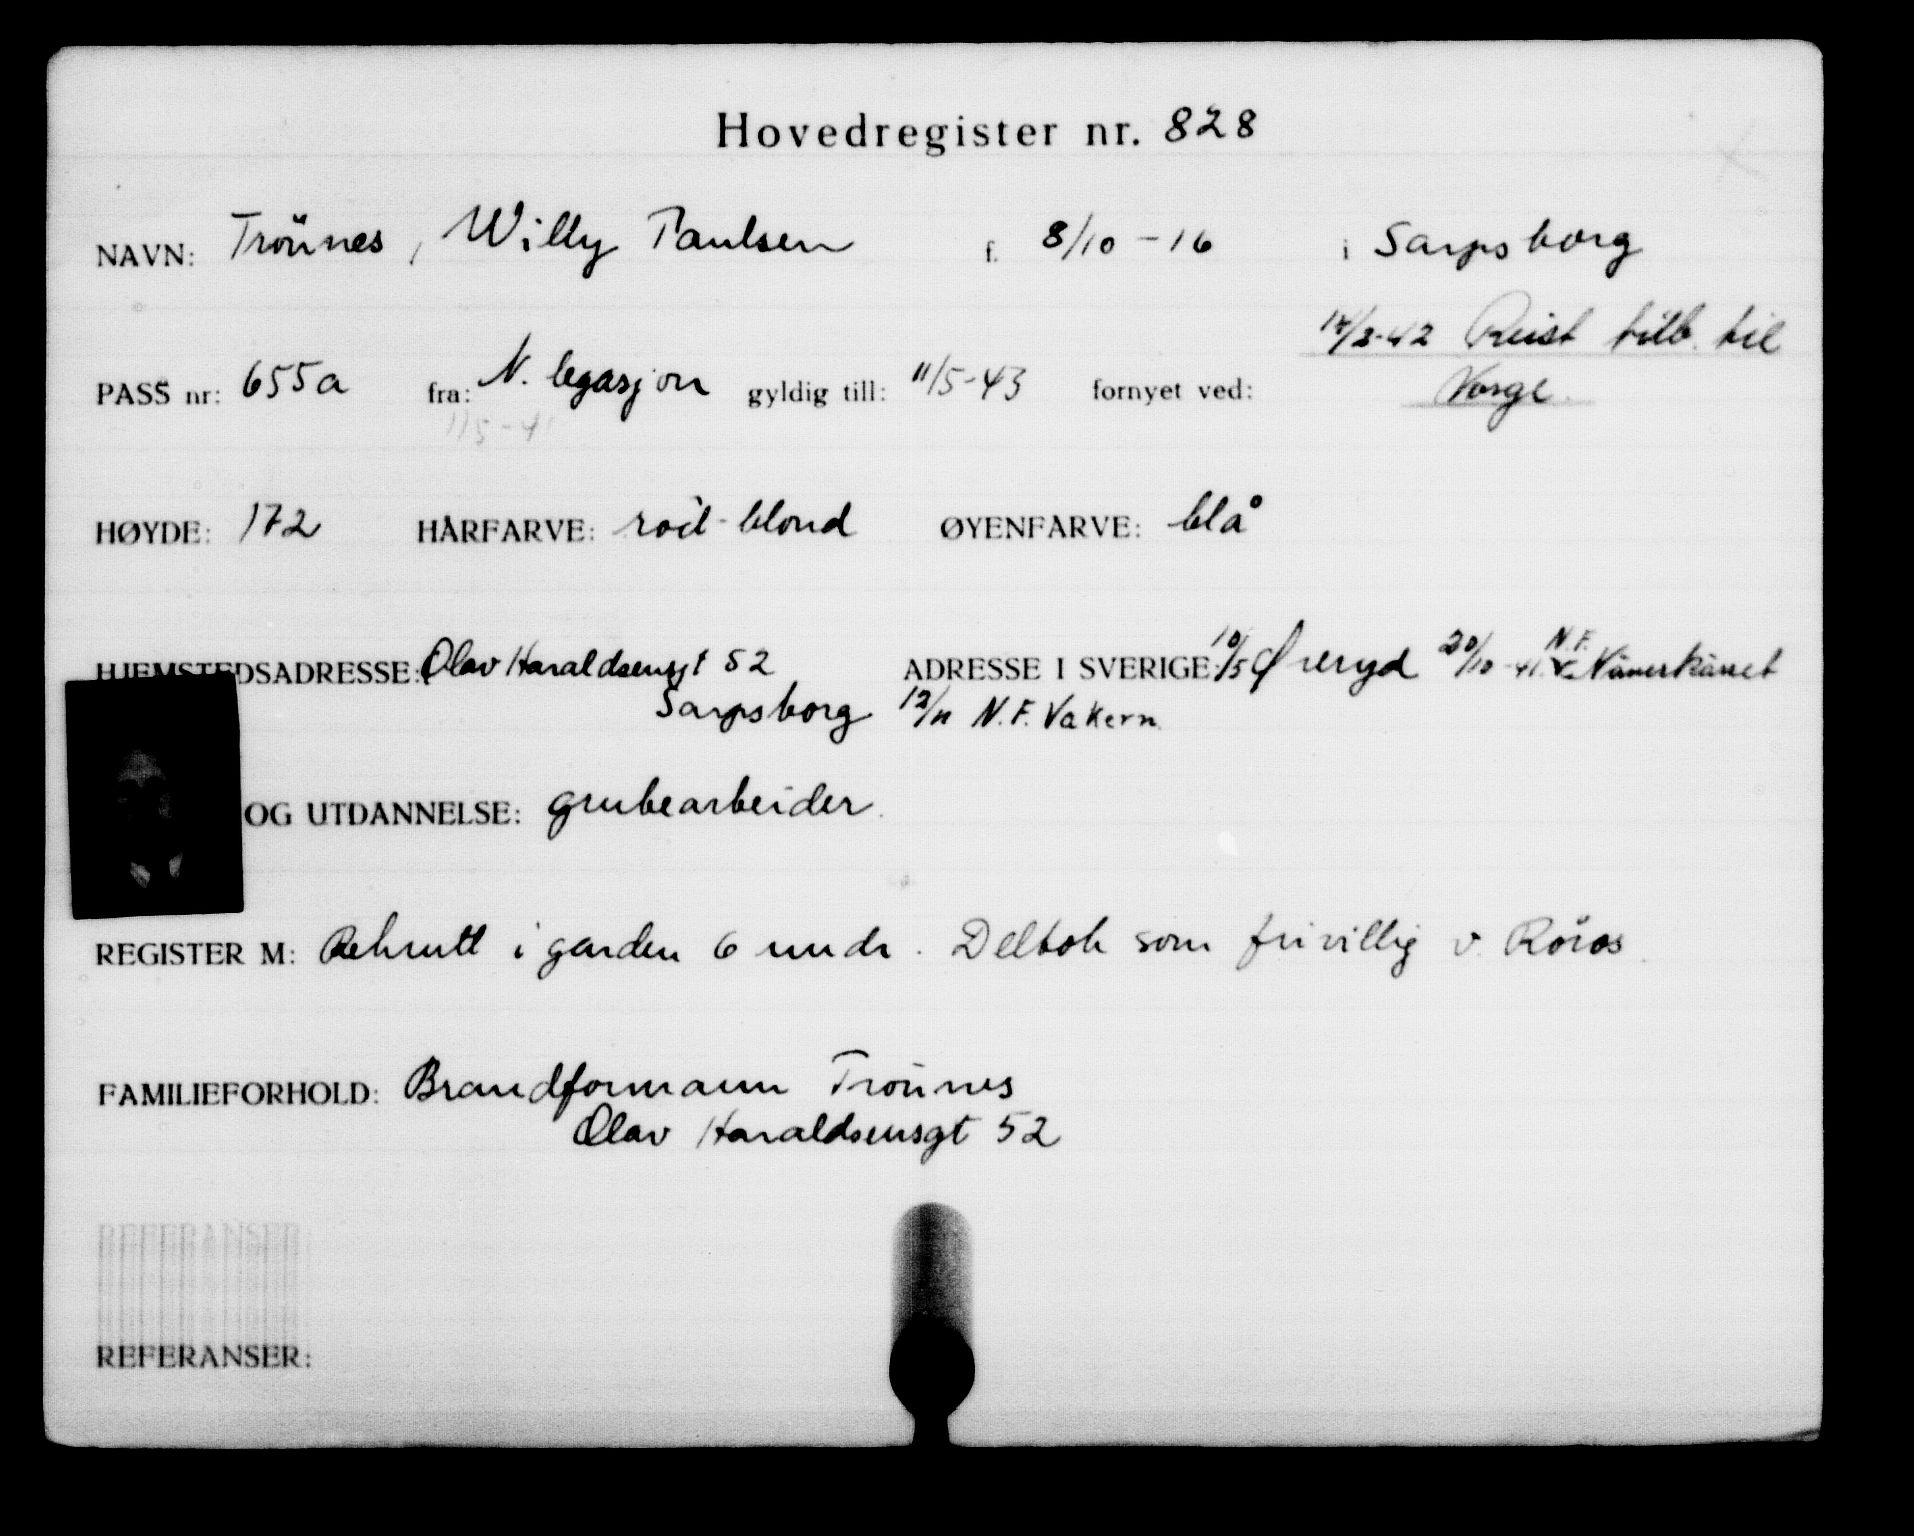 Hovedregister nr. 828
NAVN: Trönnes, Willy Paulsen f. 8/10 - 16 i Sarpsborg
14/2-42 Reist tilb. til
PASS nr: 655a fra: N. legasjon gyldig till: 11/5-43 fornyet ved: Norge.
11/5-41
HØYDE: 172 HÅRFARVE: röd-blond ØYENFARVE: blå
HJEMSTEDSADRESSE: Olav Haraldsensgt 52 ADRESSE I SVERIGE: 10/5 Øreryd 20/10-41. N.F.
Sarpsborg 12/11 N.F. Vakern
OG UTDANNELSE: grubearbeider.
REGISTER M: Rekrutt i garden 6 mndr. Deltok som frivillig v. Röros.
FAMILIEFORHOLD: Brandformann Trönnes
Olav Haraldsensgt 52
REFERANSER: